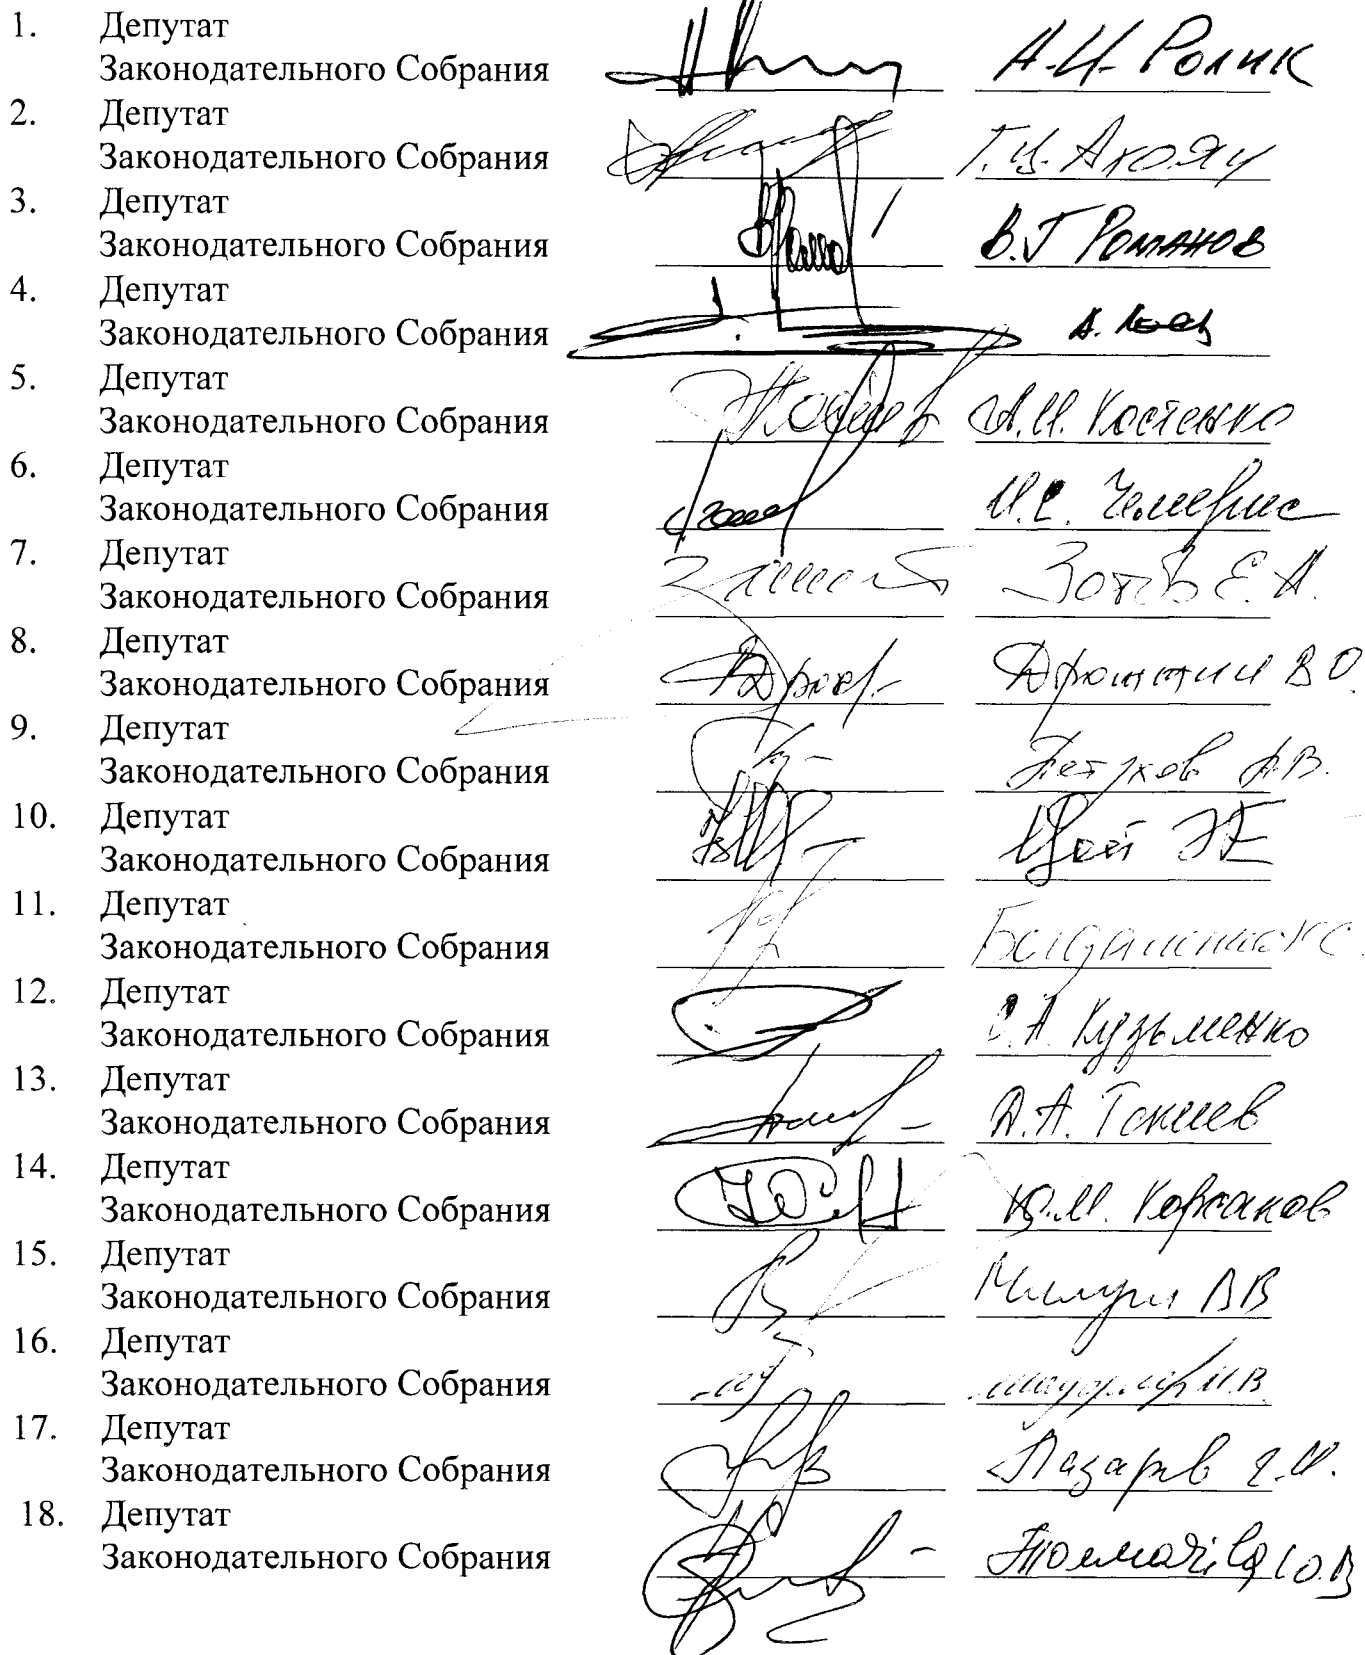 1. Депутат
Законодательного Собрания А.И. Ролик
2. Депутат
Законодательного Собрания
3. Депутат
Законодательного Собрания В.Г Романов
4. Депутат
Законодательного Собрания
5. Депутат
Законодательного Собрания А.И. Костенко
6. Депутат
Законодательного Собрания И.С. Чемерис
7. Депутат
Законодательного Собрания Зотов Е.А.
8. Депутат
Законодательного Собрания В О.
9. Депутат
Законодательного Собрания Петухов А.В.
10. Депутат
Законодательного Собрания Цой
11. Депутат
Законодательного Собрания
12. Депутат
Законодательного Собрания С.А Кузьменко
13. Депутат
Законодательного Собрания Д.А. Текиев
14. Депутат
Законодательного Собрания Ю.М. Корсаков
15. Депутат
Законодательного Собрания Милуш ВВ
16. Депутат
Законодательного Собрания
17. Депутат
Законодательного Собрания Лазарев Г.И.
18. Депутат
Законодательного Собрания Толмачёва Ю.В